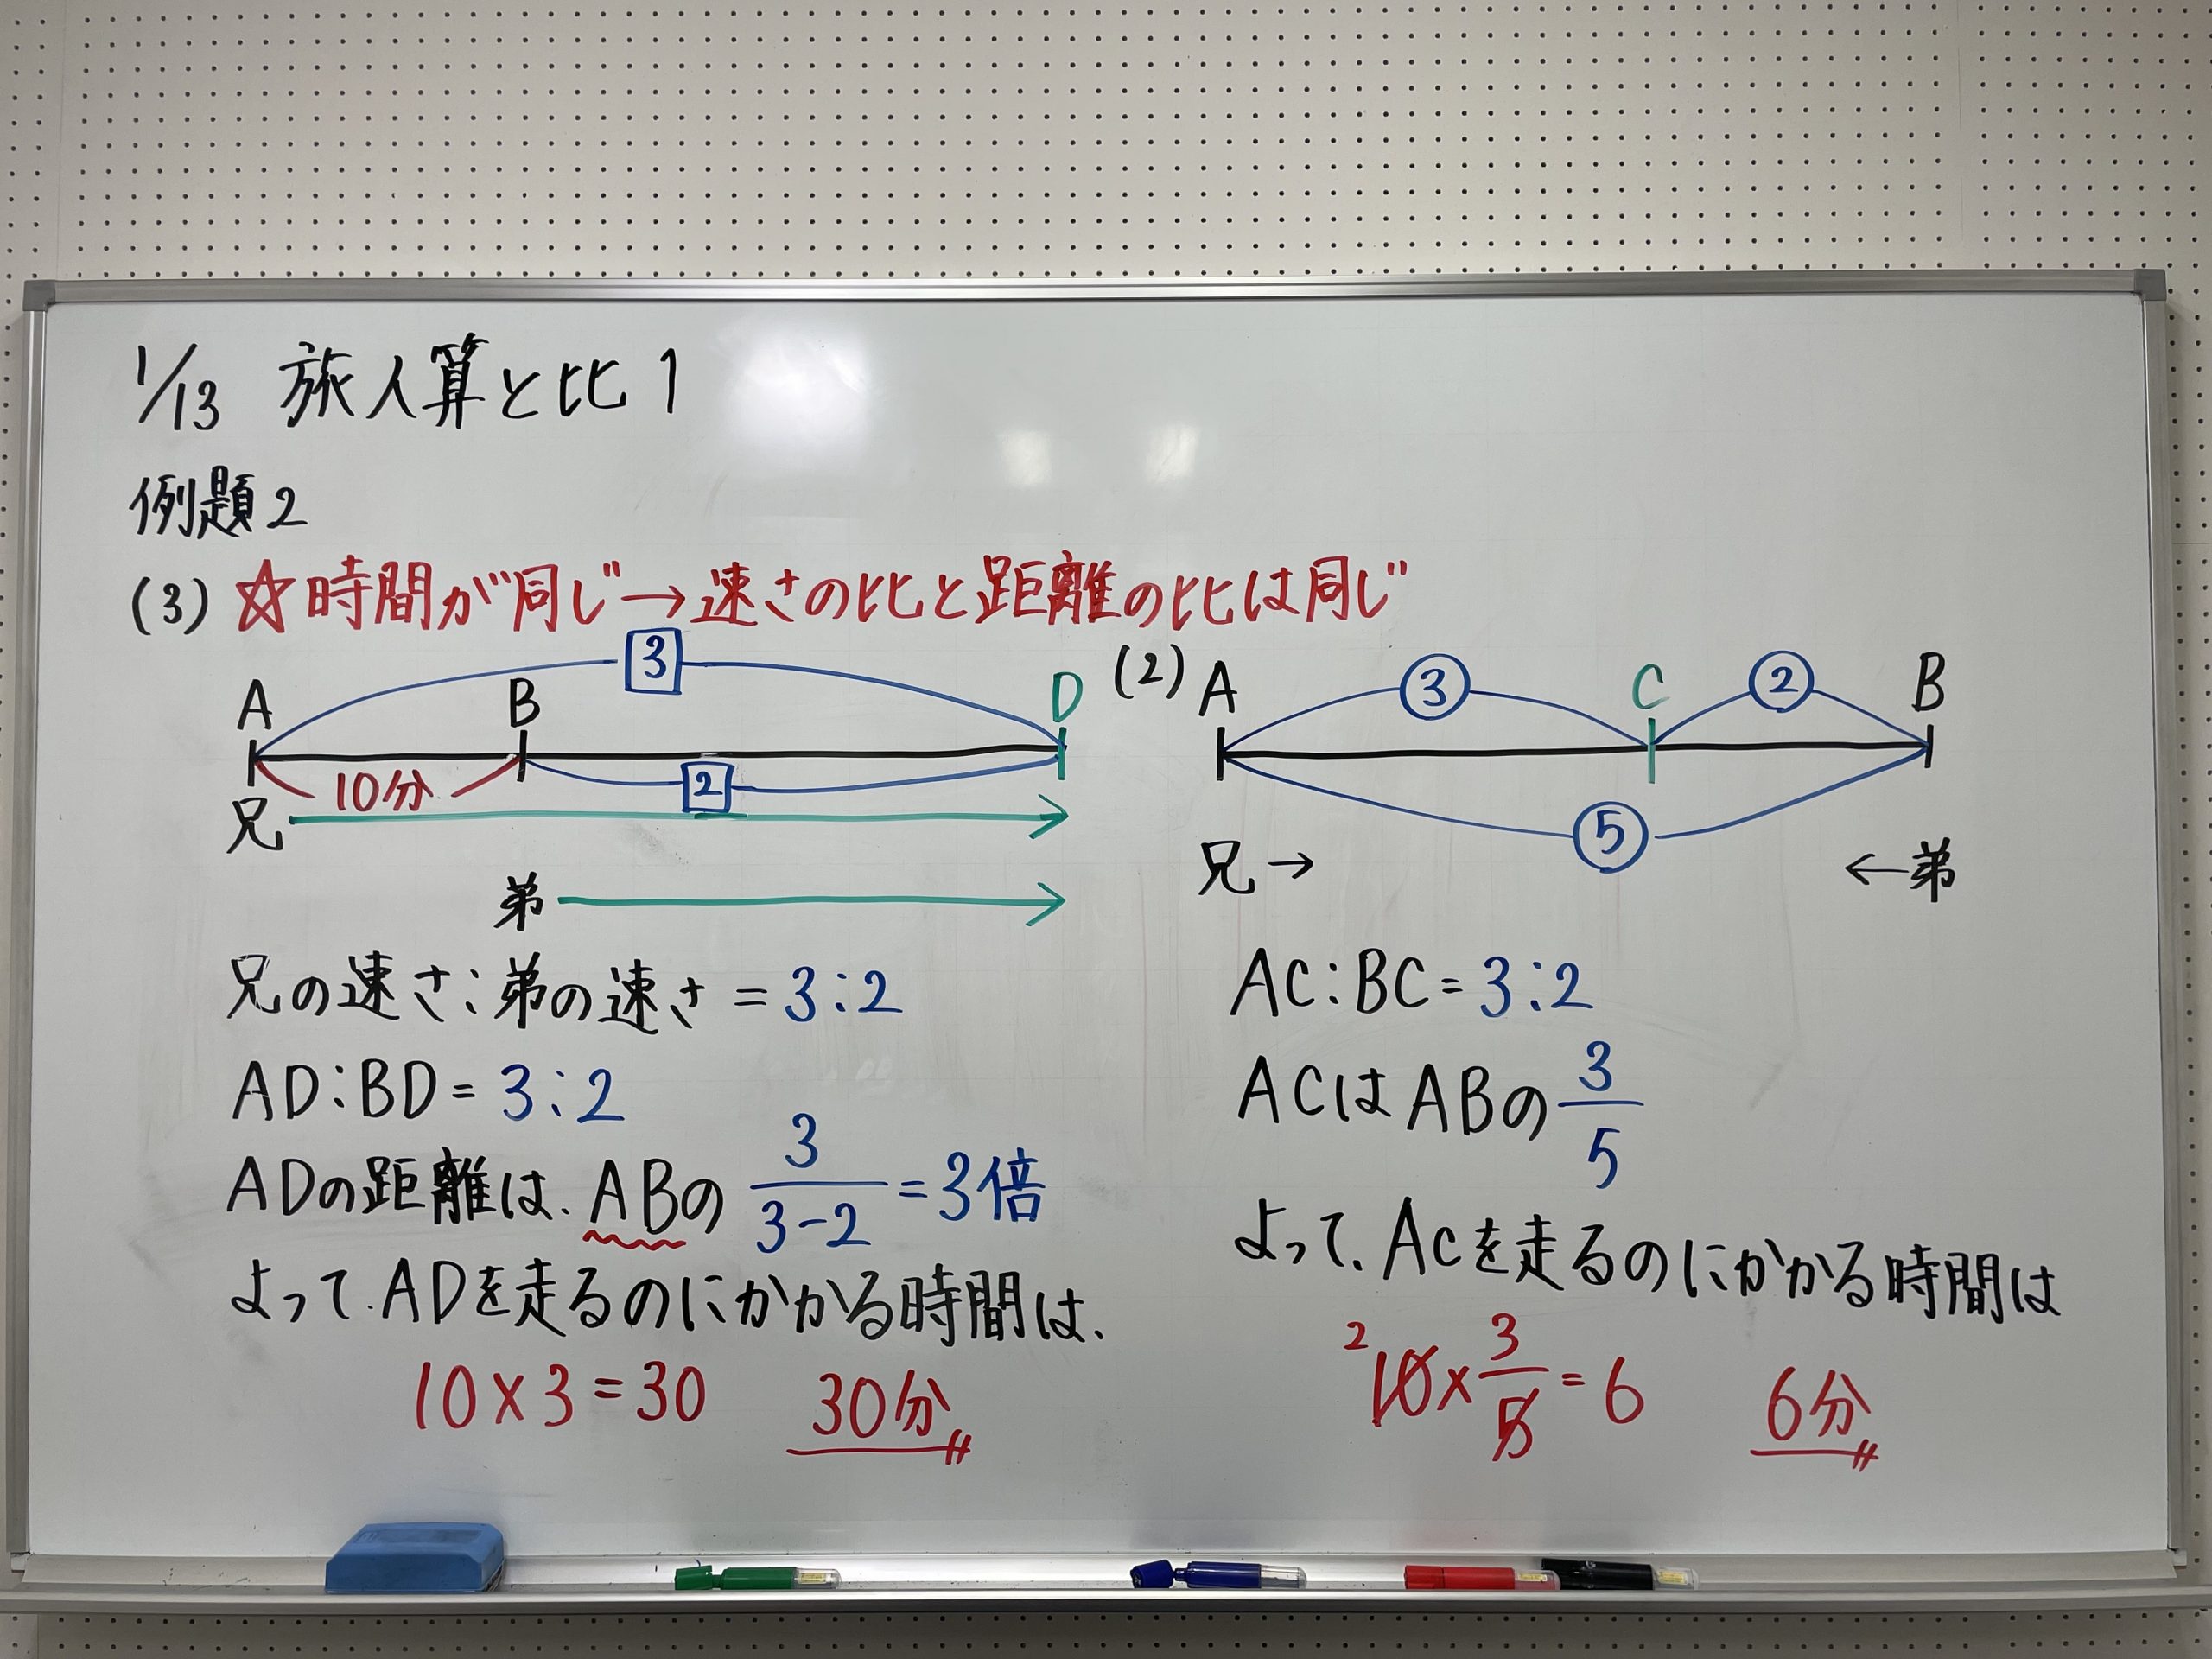 1/13 旅人算と比1
例題2
(3) ☆時間が同じ→速さの比と距離の比は同じ
3
A B D
10分
2
兄
弟
兄の速さ:弟の速さ=3:2
AD:BD=3:2
ADの距離は、ABの 3/(3-2) =3倍
よって、ADを走るのにかかる時間は、
10×3=30 30分
(2)
A ③ C ② B
⑤
兄→ ←弟
AC:BC=3:2
ACはABの 3/5
よって、ACを走るのにかかる時間は
2
10×3/5=6 6分